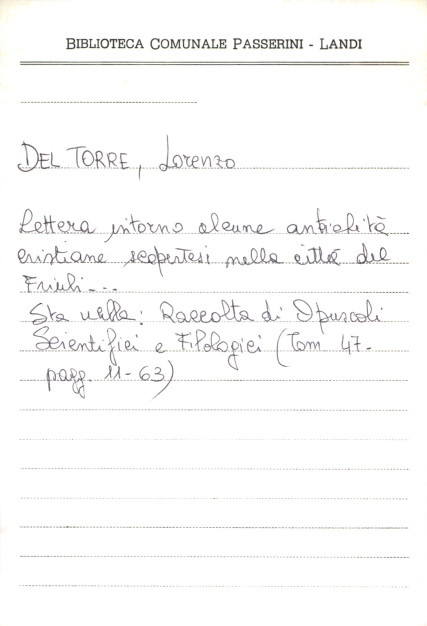 BIBLIOTECA COMUNALE PASSERINI - LANDI
DEL TORRE, Lorenzo
Lettera intorno alcune antichità
cristiane scopertesi nella città del
Friuli...
Sta nella: Raccolta di Opuscoli
Scientifici e Filologici (Tom 47-
pagg. 11-63)